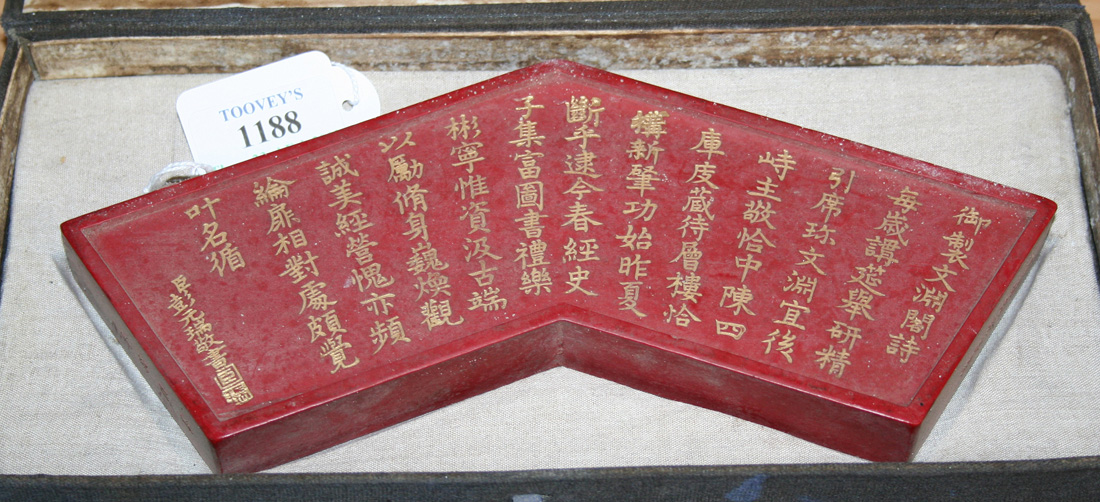 TOOVEY'S
1188
御製文淵閣詩
每歲講筵舉研精
引席珍文淵宜後
峙主敬恰中陳四
庫庋藏待層樓恰
搆新肇功始昨夏
斷手逮今春經史
子集富圖書禮樂
彬寧惟資汲古端
以勵脩身巍煥觀
誠美經營愧亦頻
綸扉相對處頗覺
叶名循
臣彭元瑞敬書